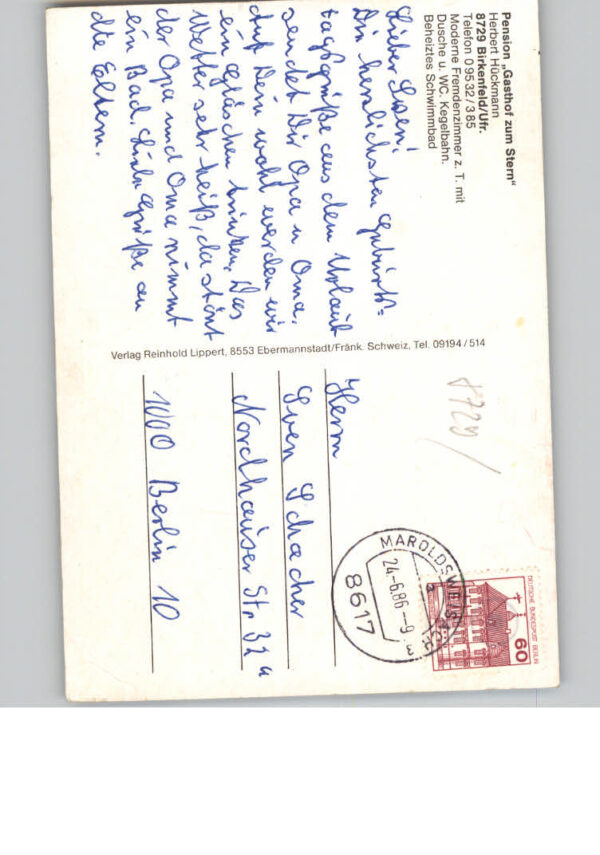 Pension „Gasthof zum Stern"
Herbert Hückmann
8729 Birkenfeld/Ufr.
Telefon 0 95 32 / 3 85
Moderne Fremdenzimmer z. T. mit
Dusche u. WC. Kegelbahn.
Beheiztes Schwimmbad
Lieber Sven!
Die herzlichsten Geburts-
tagsgrüße aus dem Urlaub
sendet Dir Opa u Oma.
Auf Dein wohl werden wir
ein Gläschen trinken. Das
Wetter sehr heiß, da nimmt
der Opa und Oma
ein Bad. Viele Grüße an
die Eltern.
Verlag Reinhold Lippert, 8553 Ebermannstadt/Fränk. Schweiz, Tel. 09194 / 514
8729
Herrn
Sven Schacher
Nordhauser Str. 32 a
1000 Berlin 10
MAROLDSWEISACH
24.-6.86-9
a
8617
DEUTSCHE BUNDESPOST BERLIN
60